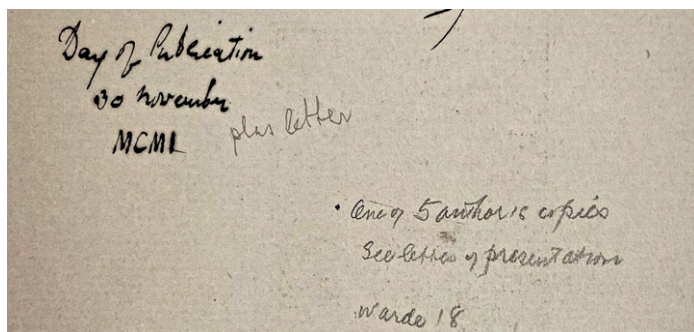 Day of Publication
30 November
MCML
plus letter
One of 5 author's copies
See letter of presentation
Warde 18